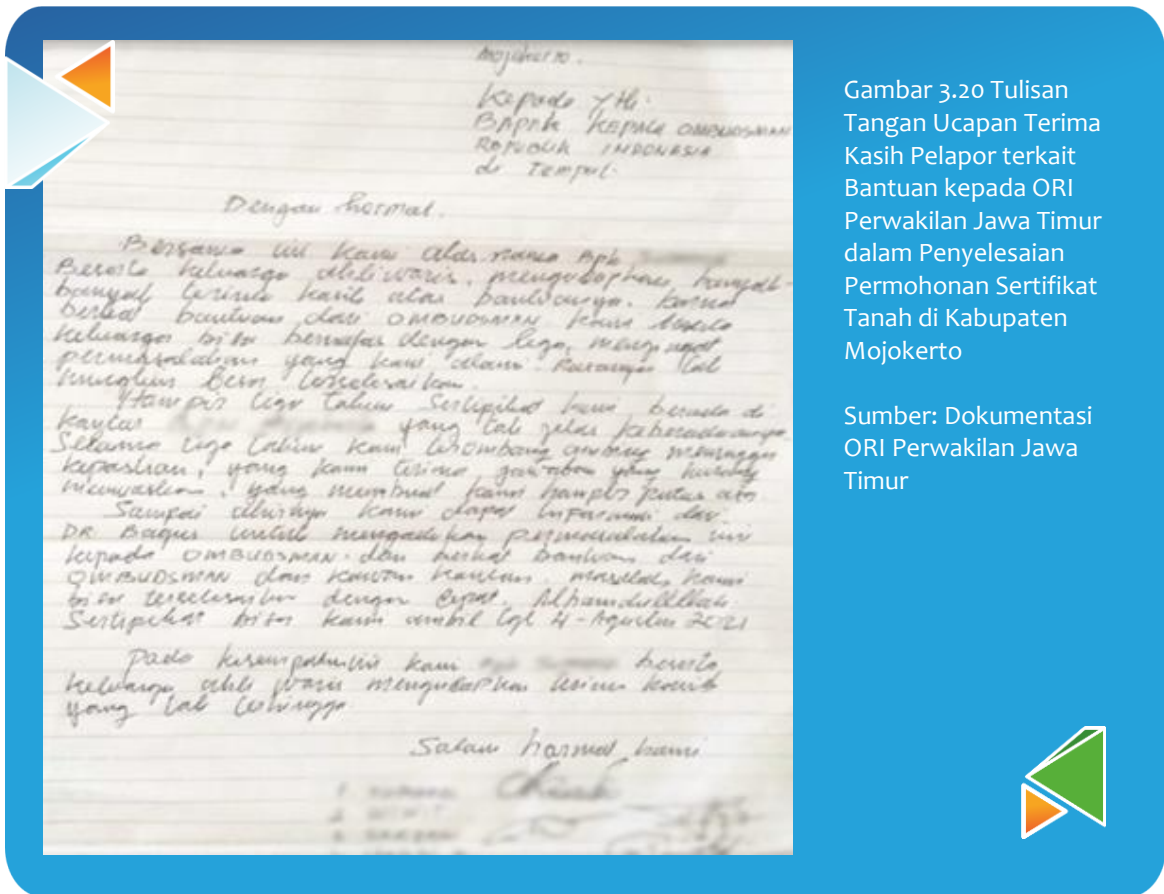 Mojokerto.
Kepada Yth.
BAPAK KEPALA OMBUDSMAN
REPUBLIK INDONESIA
di Tempat.
Dengan hormat.
Bersama ini kami atas nama Bpk
Beserta keluarga ahli waris, mengucapkan banyak-
banyak terima kasih atas bantuanya. Karna
berkat bantuan dari OMBUDSMAN kami beserta
keluarga bisa bernafas dengan lega, mengingat
permasalahan yang kami alami. Rasanya tak
mungkin bisa terselesaikan.
Hampir tiga tahun Sertipikat kami berada di
Kantor yang tak jelas keberadaanya.
Selama tiga tahun kami terombang ambing menunggu
kepastian, yang kami terima jawaban yang kurang
yang membuat kami hampir putus
Sampai akhirnya kami dapat informasi dari
DR Bagus untuk mengadukan permasalahan ini
kepada OMBUDSMAN. dan berkat bantuan dari
OMBUDSMAN dan kawan kawan, masalah kami
bisa terselesaikan dengan cepat. Alhamdulillah
Sertipikat bisa kami ambil tgl 4-Agustus 2021
Pada kesempatan ini kami beserta
keluarga ahli waris mengucapkan terima kasih
yang tak terhingga
Salam hormat kami
Gambar 3.20 Tulisan
Tangan Ucapan Terima
Kasih Pelapor terkait
Bantuan kepada ORI
Perwakilan Jawa Timur
dalam Penyelesaian
Permohonan Sertifikat
Tanah di Kabupaten
Mojokerto
Sumber: Dokumentasi
ORI Perwakilan Jawa
Timur